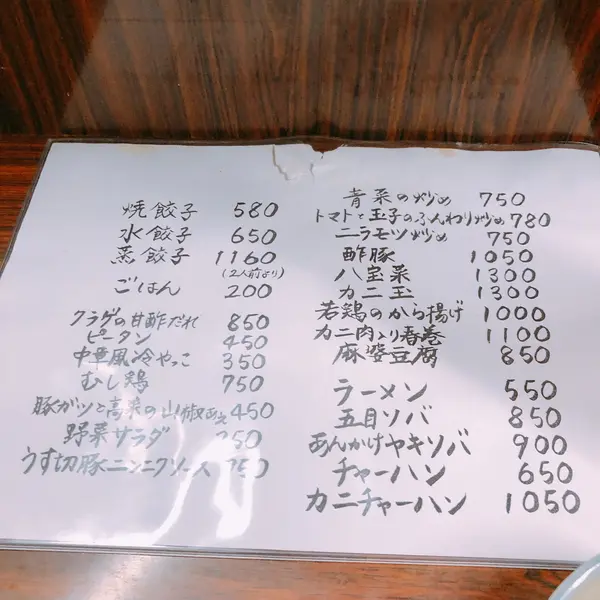 焼餃子 580
水餃子 650
蒸餃子 1160
(2人前より)
ごはん 200
クラゲの甘酢だれ 850
ピータン 450
中華風冷やっこ 350
むし鶏 750
豚ガツと高菜の山椒あえ 450
野菜サラダ
うす切豚ニンニクソース
青菜の炒め 750
トマトと玉子のふんわり炒め 780
ニラモツ炒め 750
酢豚 1050
八宝菜 1300
カニ玉 1300
若鶏のから揚げ 1000
カニ肉入り春巻 1100
麻婆豆腐 850
ラーメン 550
五目ソバ 850
あんかけヤキソバ 900
チャーハン 650
カニチャーハン 1050